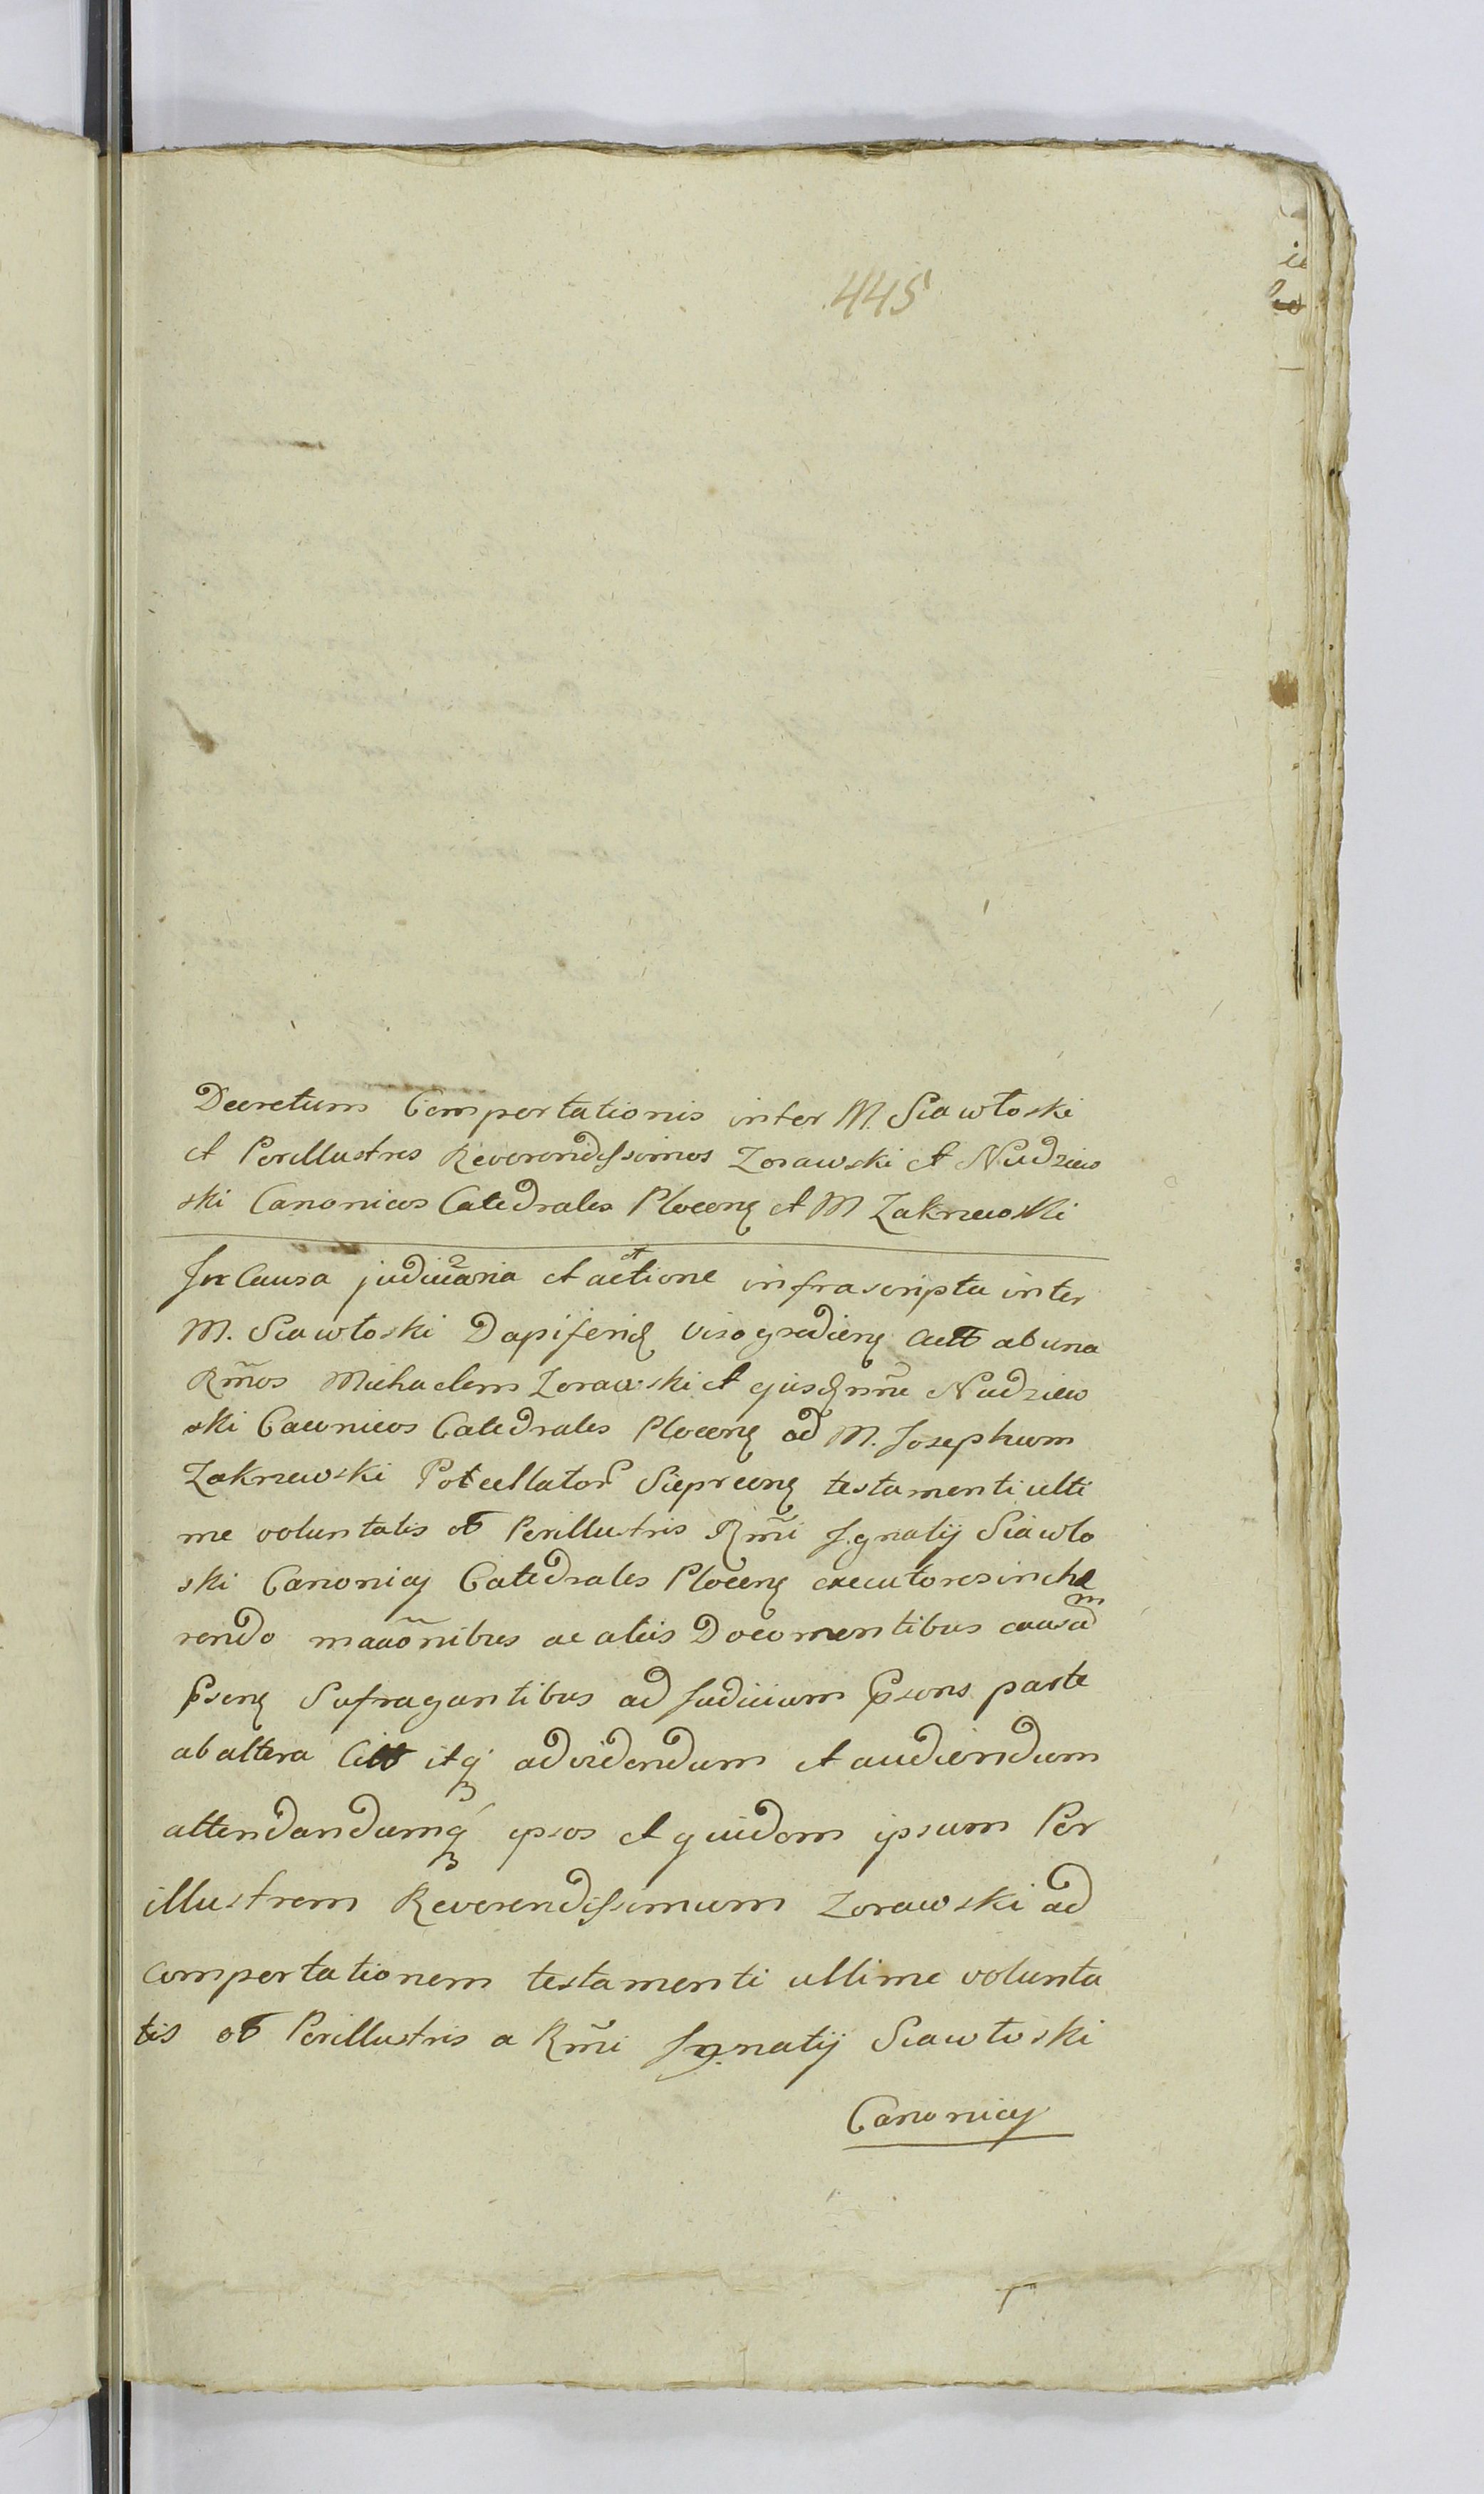 445
Decretum Comportationis inter M. Siawłoski
et Perillustres Reverendissimos Zorawski et Nudziew
ski Canonicos Catedrales Plocens et M Zakrzewski
In Causa judicaria et actione infrascripta inter
M. Siawłoski Dapiferid Visogradiens act ab una
Rm̃os Michaelem Zorawski et Nudziew
ski Caconicos Catedrales Plocens ad M. Josephum
Zakrzewski Siepreens testamenti ulti
me voluntatis ol Perillustris Rm̃i Ignatij Siawło
ski Canonicy Catedrales Plocens executores inche
rendo ac aliis Docomentibus causam
Psens Sufragantibus ad Judicium Psens parte
ab altera itq advidendum et audiendum
attendandumq ipsos et quidem ipsum Per
illustrem Reverendissimum Zorawski ad
Comportationem testamenti ultime volunta
tis ol Perillustris a Rm̃i Ignatij Siawłoski
Canonicy